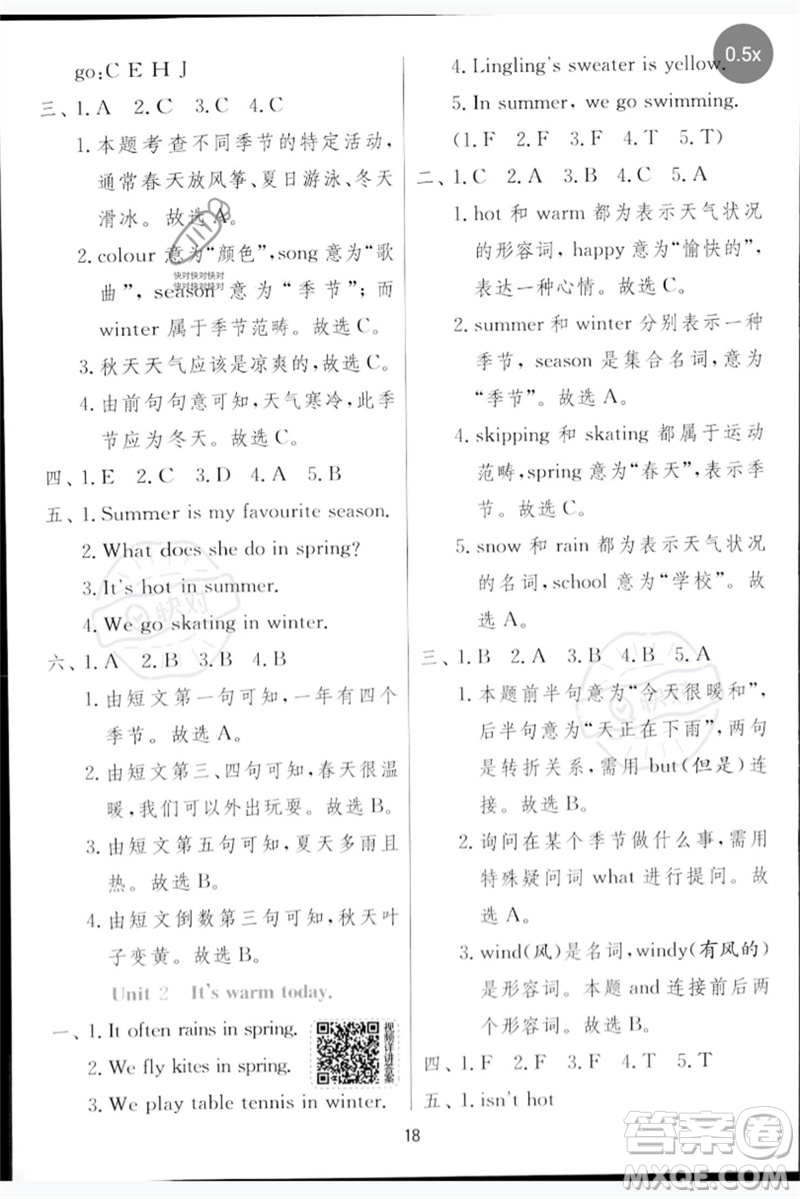 go:C E H J
三、1. A 2. C 3. C 4. C
1. 本题考查不同季节的特定活动，
通常春天放风筝、夏日游泳、冬天
滑冰。故选 A。
2. colour 意为“颜色”，song 意为“歌
曲”，season 意为“季节”；而
winter 属于季节范畴。故选 C。
3. 秋天天气应该是凉爽的。故选 C。
4. 由前句句意可知，天气寒冷，此季
节应为冬天。故选 C。
四、1. E 2. C 3. D 4. A 5. B
五、1. Summer is my favourite season.
2. What does she do in spring?
3. It's hot in summer.
4. We go skating in winter.
六、1. A 2. B 3. B 4. B
1. 由短文第一句可知，一年有四个
季节。故选 A。
2. 由短文第三、四句可知，春天很温
暖，我们可以外出玩耍。故选 B。
3. 由短文第五句可知，夏天多雨且
热。故选 B。
4. 由短文倒数第三句可知，秋天叶
子变黄。故选 B。
Unit 2 It's warm today.
一、1. It often rains in spring.
2. We fly kites in spring.
3. We play table tennis in winter.
视频详讲答案
0.5x
4. Lingling's sweater is yellow.
5. In summer, we go swimming.
(1. F 2. F 3. F 4. T 5. T)
二、1. C 2. A 3. C 4. C 5. A
1. hot 和 warm 都为表示天气状况
的形容词，happy 意为“愉快的”，
表达一种心情。故选 C。
2. summer 和 winter 分别表示一种
季节，season 是集合名词，意为
“季节”。故选 A。
4. skipping 和 skating 都属于运动
范畴，spring 意为“春天”，表示季
节。故选 C。
5. snow 和 rain 都为表示天气状况
的名词，school 意为“学校”。故
选 A。
三、1. B 2. A 3. B 4. B 5. A
1. 本题前半句意为“今天很暖和”，
后半句意为“天正在下雨”，两句
是转折关系，需用 but(但是)连
接。故选 B。
2. 询问在某个季节做什么事，需用
特殊疑问词 what 进行提问。故
选 A。
3. wind(风)是名词，windy(有风的)
是形容词。本题 and 连接前后两
个形容词。故选 B。
四、1. F 2. F 3. F 4. T 5. T
五、1. isn't hot
18
快对快对快对
快对快对快对
快对
快对
答案圈
MXQE.COM